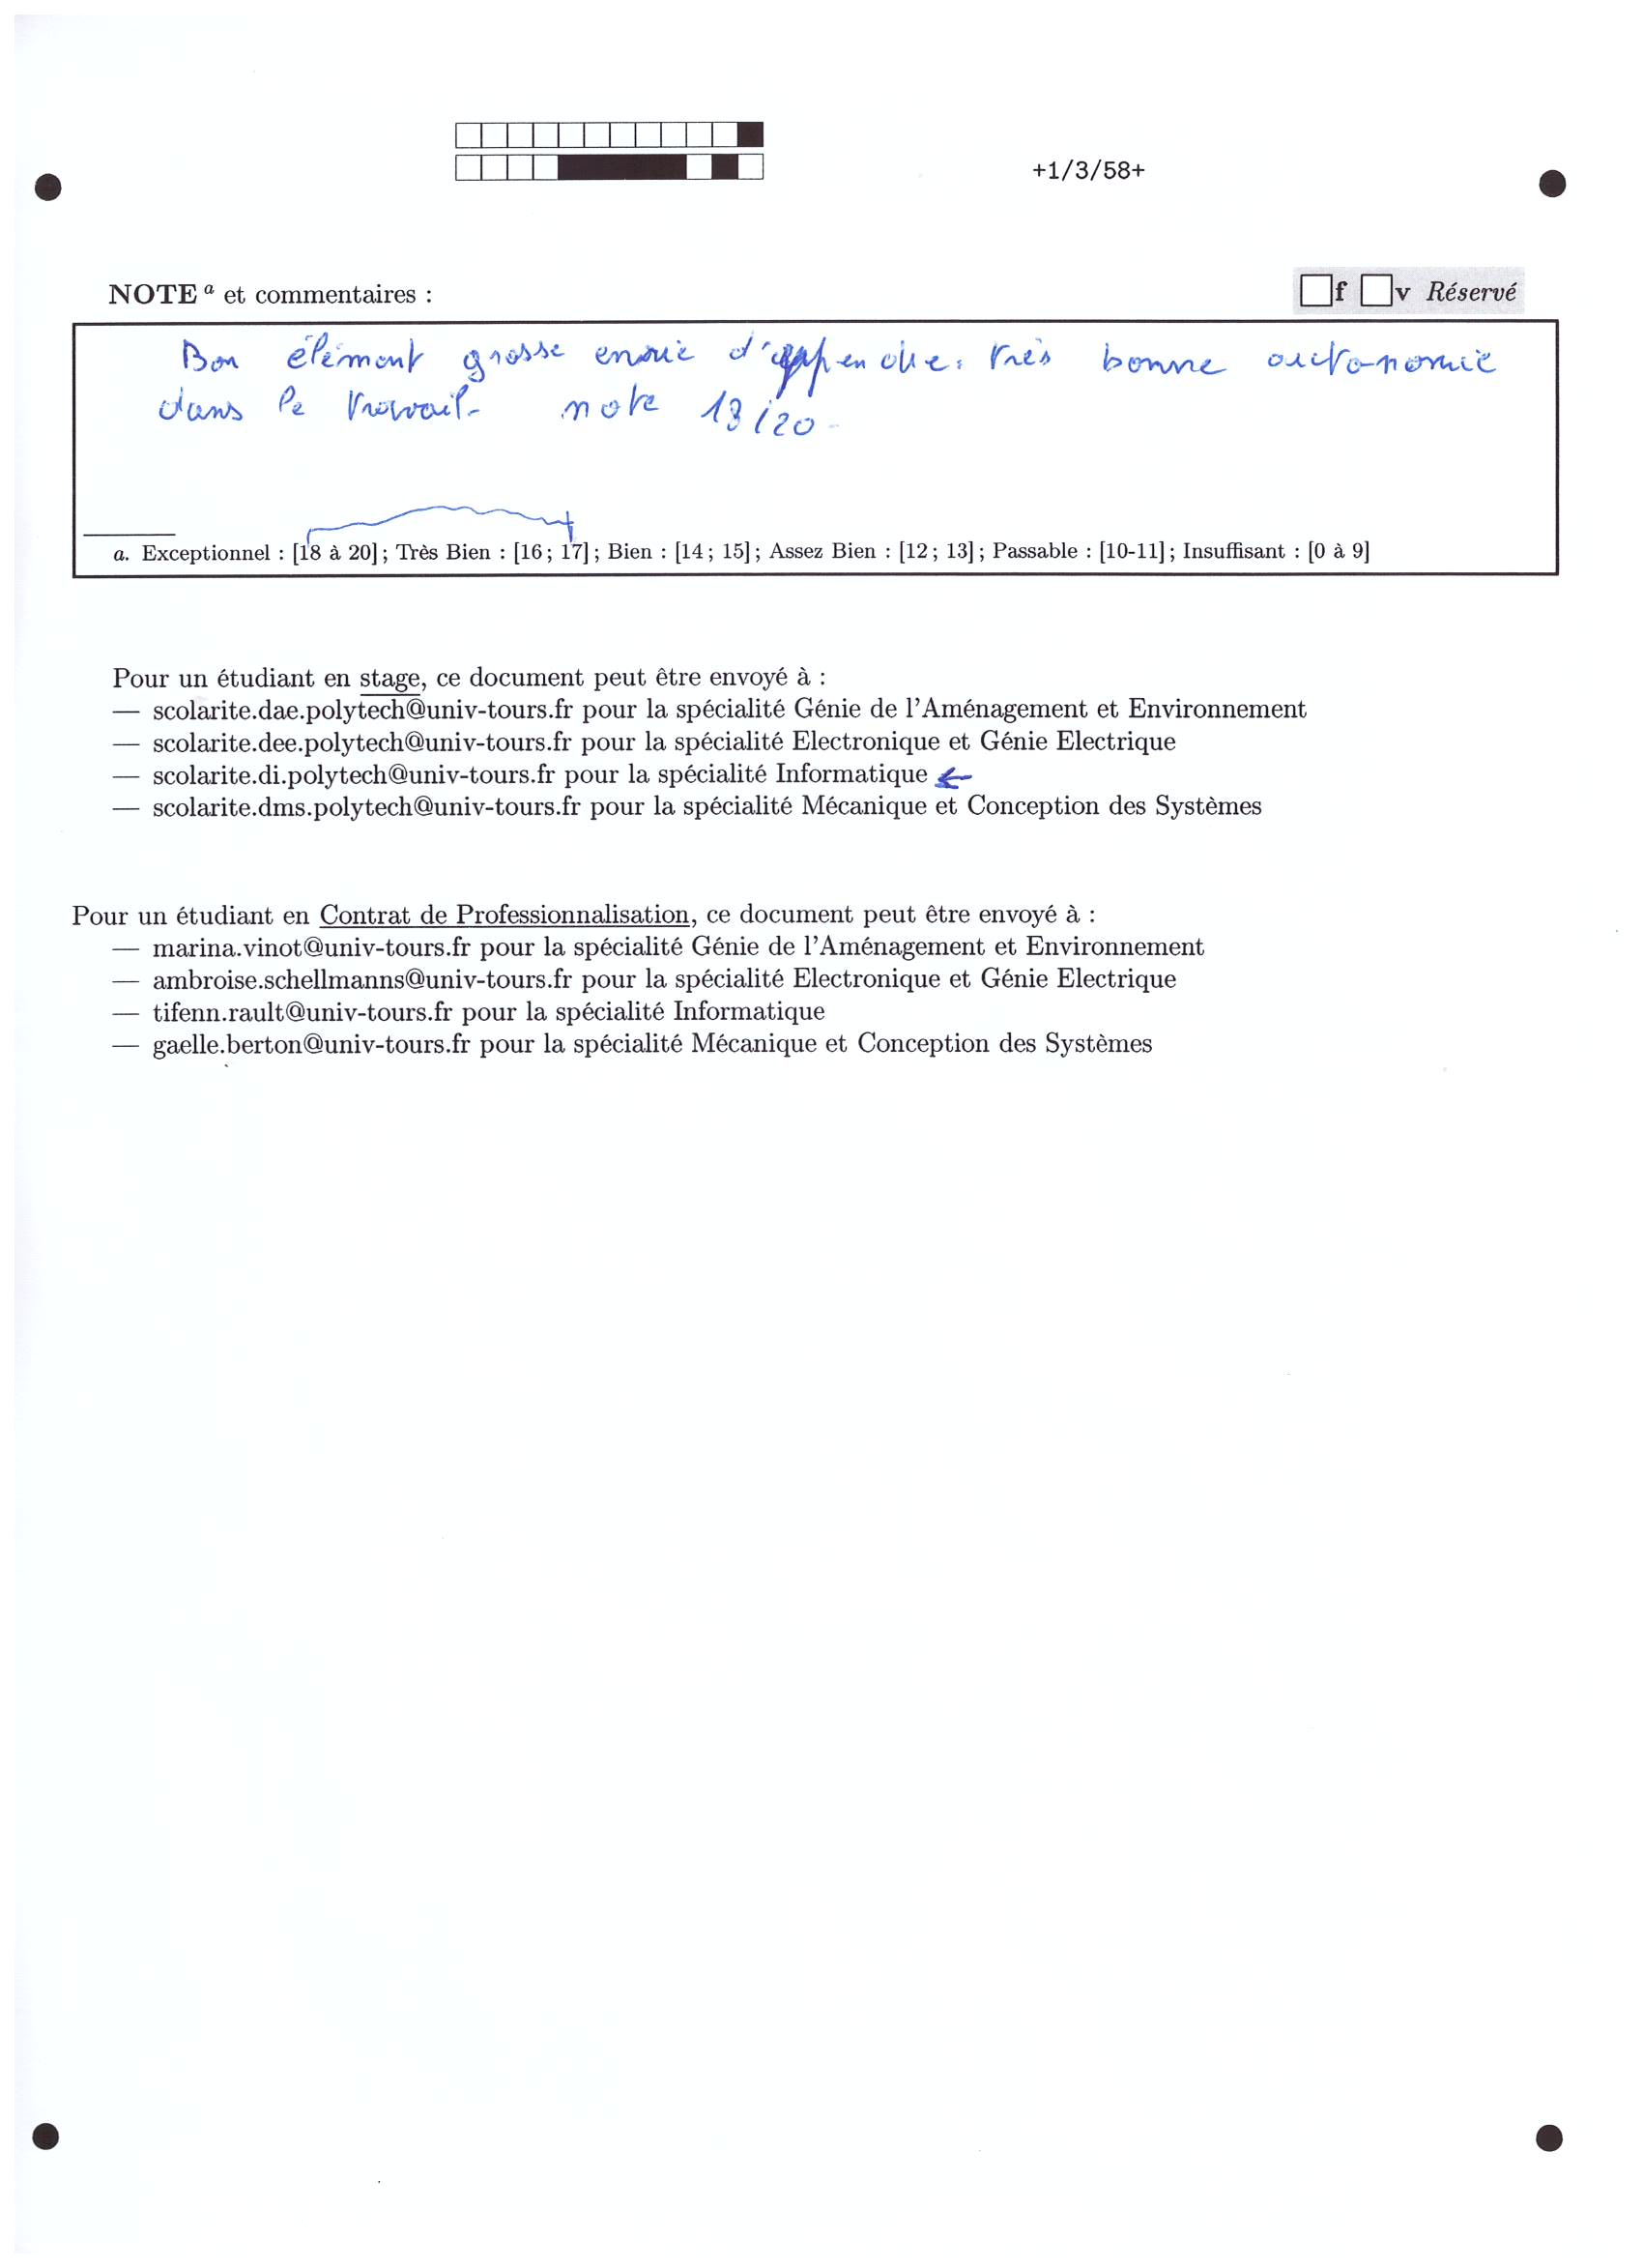 +1/3/58+
NOTE a et commentaires :
f v Réservé
Bon élément grosse envie d'apprendre. très bonne autonomie
dans le travail. note 13/20
a. Exceptionnel : [18 à 20] ; Très Bien : [16 ; 17] ; Bien : [14 ; 15] ; Assez Bien : [12 ; 13] ; Passable : [10-11] ; Insuffisant : [0 à 9]
Pour un étudiant en stage, ce document peut être envoyé à :
— scolarite.dae.polytech@univ-tours.fr pour la spécialité Génie de l'Aménagement et Environnement
— scolarite.dee.polytech@univ-tours.fr pour la spécialité Electronique et Génie Electrique
— scolarite.di.polytech@univ-tours.fr pour la spécialité Informatique ←
— scolarite.dms.polytech@univ-tours.fr pour la spécialité Mécanique et Conception des Systèmes
Pour un étudiant en Contrat de Professionnalisation, ce document peut être envoyé à :
— marina.vinot@univ-tours.fr pour la spécialité Génie de l'Aménagement et Environnement
— ambroise.schellmanns@univ-tours.fr pour la spécialité Electronique et Génie Electrique
— tifenn.rault@univ-tours.fr pour la spécialité Informatique
— gaelle.berton@univ-tours.fr pour la spécialité Mécanique et Conception des Systèmes